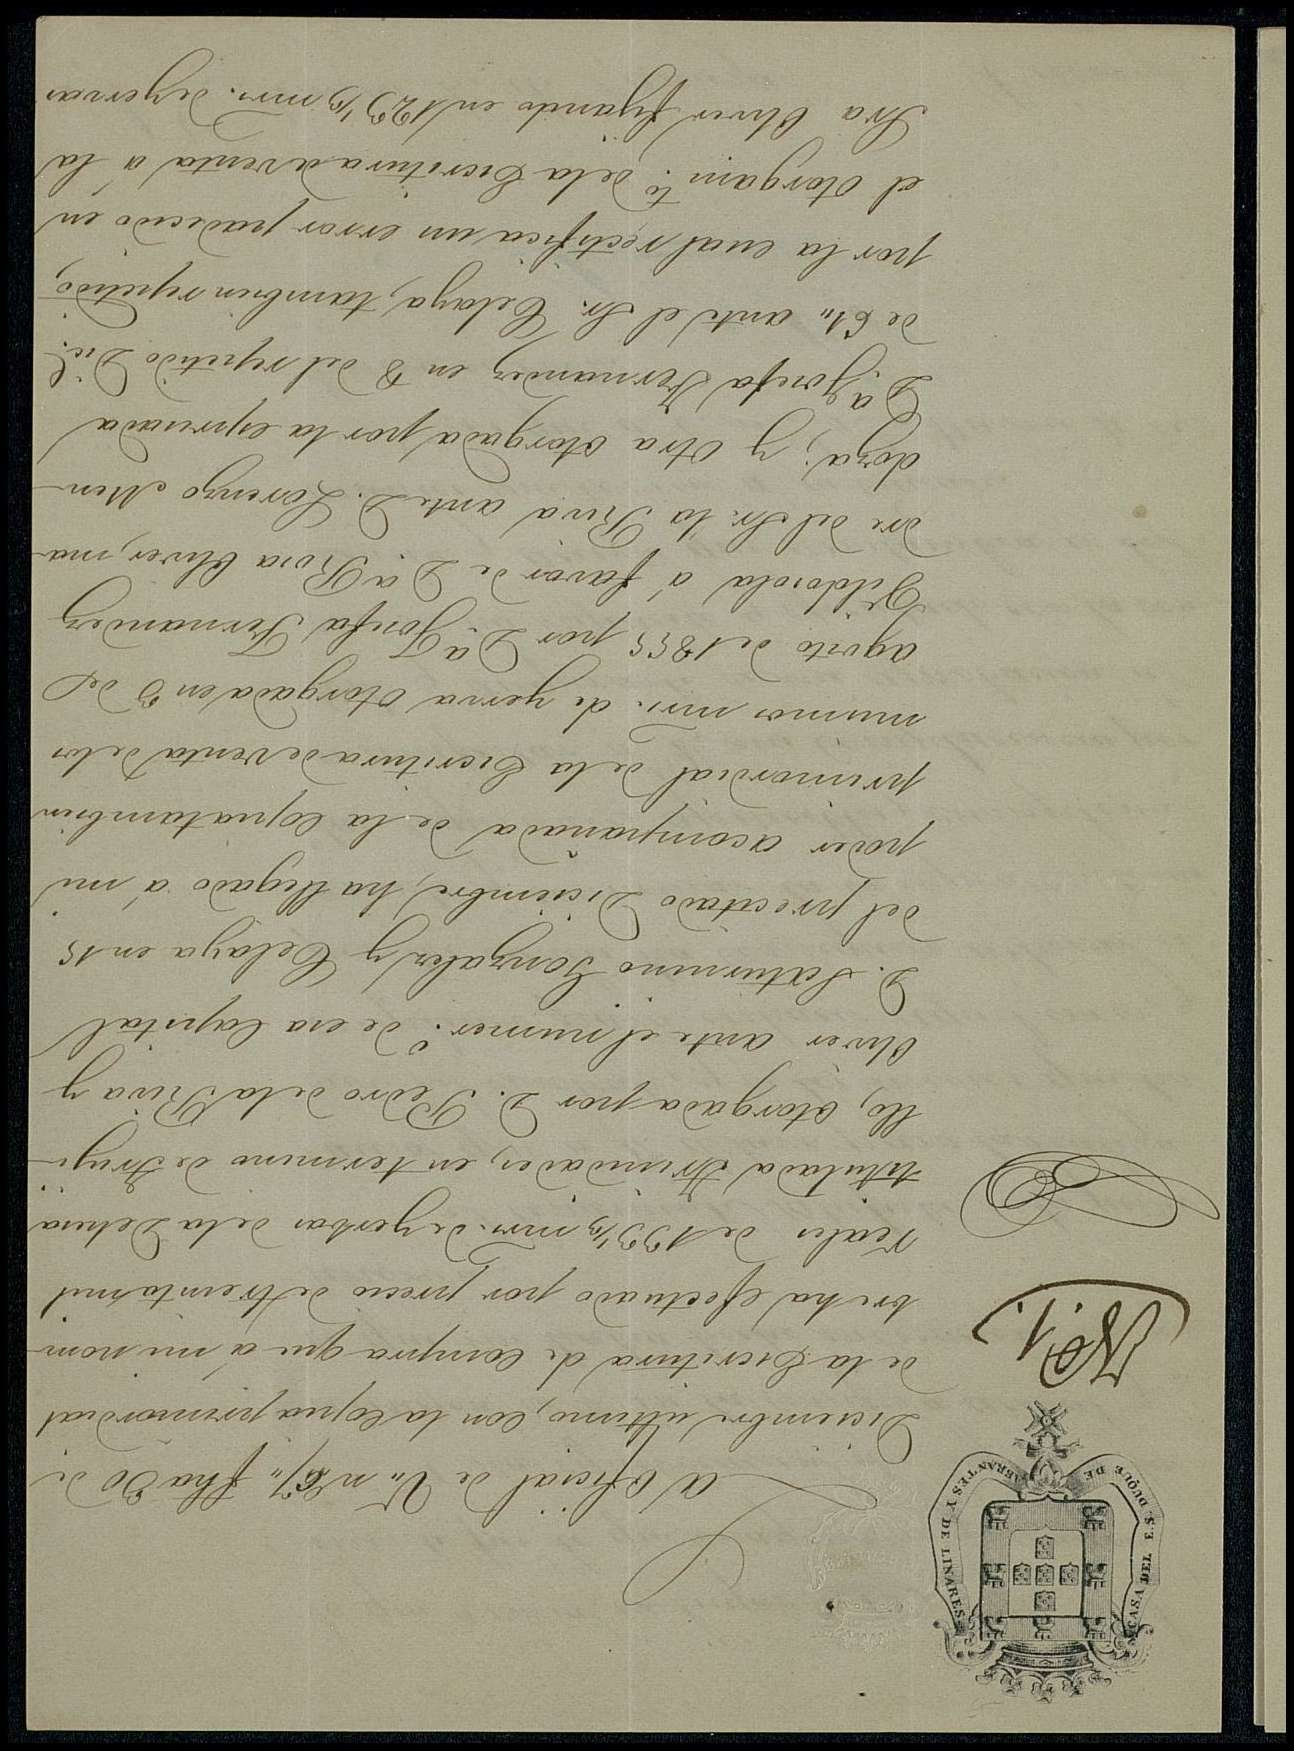 CASA DEL E.S. DUQUE DE ABRANTES Y DE LINARES
Nº 1.
Al Oficial de V. nº 67,, fha 30 de
Diciembre último, con la copia primordial
de la Escritura de Compra que á mi nom-
bre ha efectuado por precio de treinta mil
reales de 133 1/3 mrs. de yerbas de la Dehesa
titulada Trinidades, en termino de Truji-
llo, otorgada por D. Pedro de la Riva y
Oliver ante el numer.º de esa Capital
D. Saturnino Gonzalez y Celaya en 15
del precitado Diciembre, ha llegado á mi
poder acompañada de la copia tambien
primordial de la Escritura de venta de los
mismos mrs. de yerva otorgada en 3 de
agosto de 1855 por Dª Josefa Fernandez
Vildosola á favor de Dª Rosa Oliver, ma-
dre del Sr. la Riva ante D. Lorenzo Men-
doza; y otra otorgada por la espresada
Dª Josefa Fernandez en 8 del repetido Dic.ᵉ
de 61,, ante el Sr. Celaya, tambien repetido,
por la cual rectifica un error padecido en
el otorgam.to de la Escritura de venta á la
Sra Oliver fijando en 123 1/3 mrs. de yervas